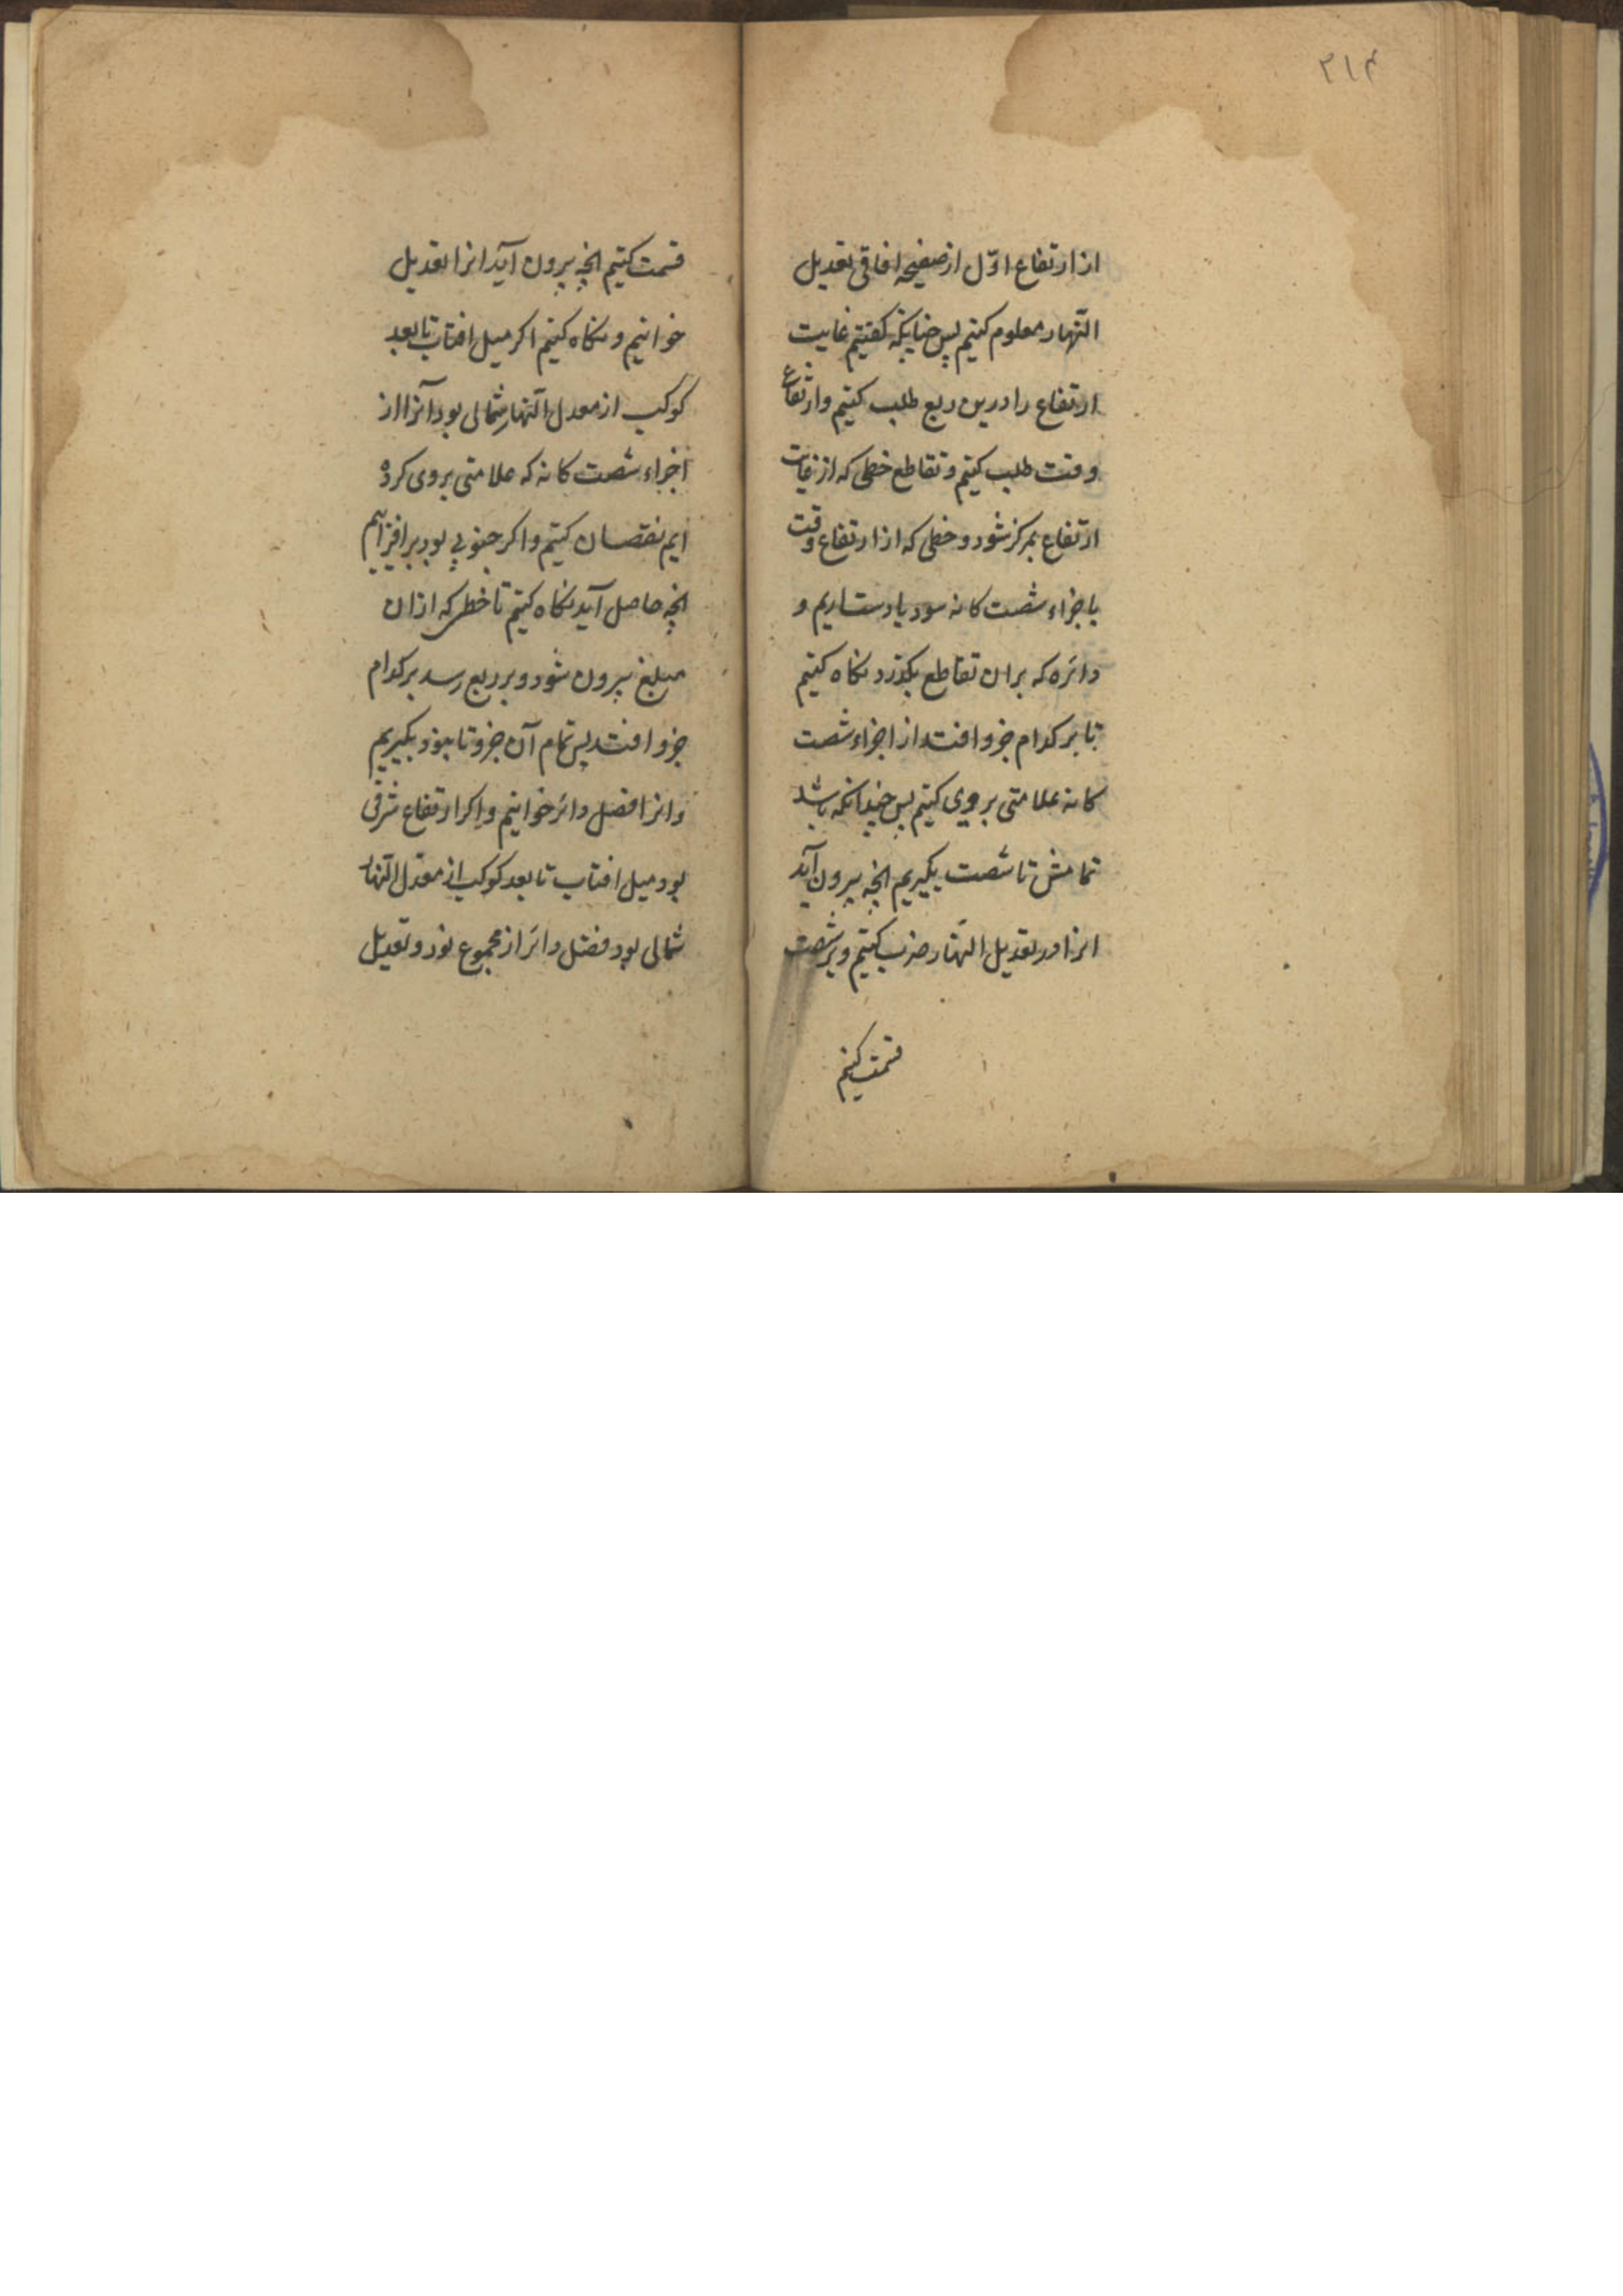 ۳۱۴
از ارتفاع اوّل از صفیحه افاقی تعدیل
النّهار معلوم کنیم پس چنانکه کفتیم غایت
ارتفاع را درین ربع طلب کنیم وارتفاع
وقت طلب کنیم و تقاطع خطی که از غایت
ارتفاع بمرکز شود و خطی که از ارتفاع وقت
باجزاء شصت کانه سود یاد ستاریم و
دائره که بران تقاطع بکذرد نکاه کنیم
تا بر کدام جزو افتد از اجزاء شصت
کانه علامتی بروی کنیم پس چندانکه باشد
تمامش تا شصت بکیریم انچه بیرون آید
انرا در تعدیل النّهار ضرب کنیم و بر شصت
قسمت کنیم
قسمت کنیم انچه بیرون آید انرا تعدیل
خوانیم و نکاه کنیم اکر میل افتاب تا بعد
کوکب از معدل النّهار شمالی بود آنرا از
اجزاء شصت کانه که علامتی بروی کرده
ایم نقصان کنیم و اکر جنوبی بود برافزاییم
انچه حاصل آید نکاه کنیم تا خطی که ازان
مبلغ بیرون شود و بر ربع رسد بر کدام
جزو افتد پس تمام آن جزو تا بنود بکیریم
وانرا فضل دائر خوانیم و اکر ارتفاع شرقی
بود میل افتاب تا بعد کوکب از معدّل النّهار
شمالی بود فضل دائر از مجموع نود و تعدیل